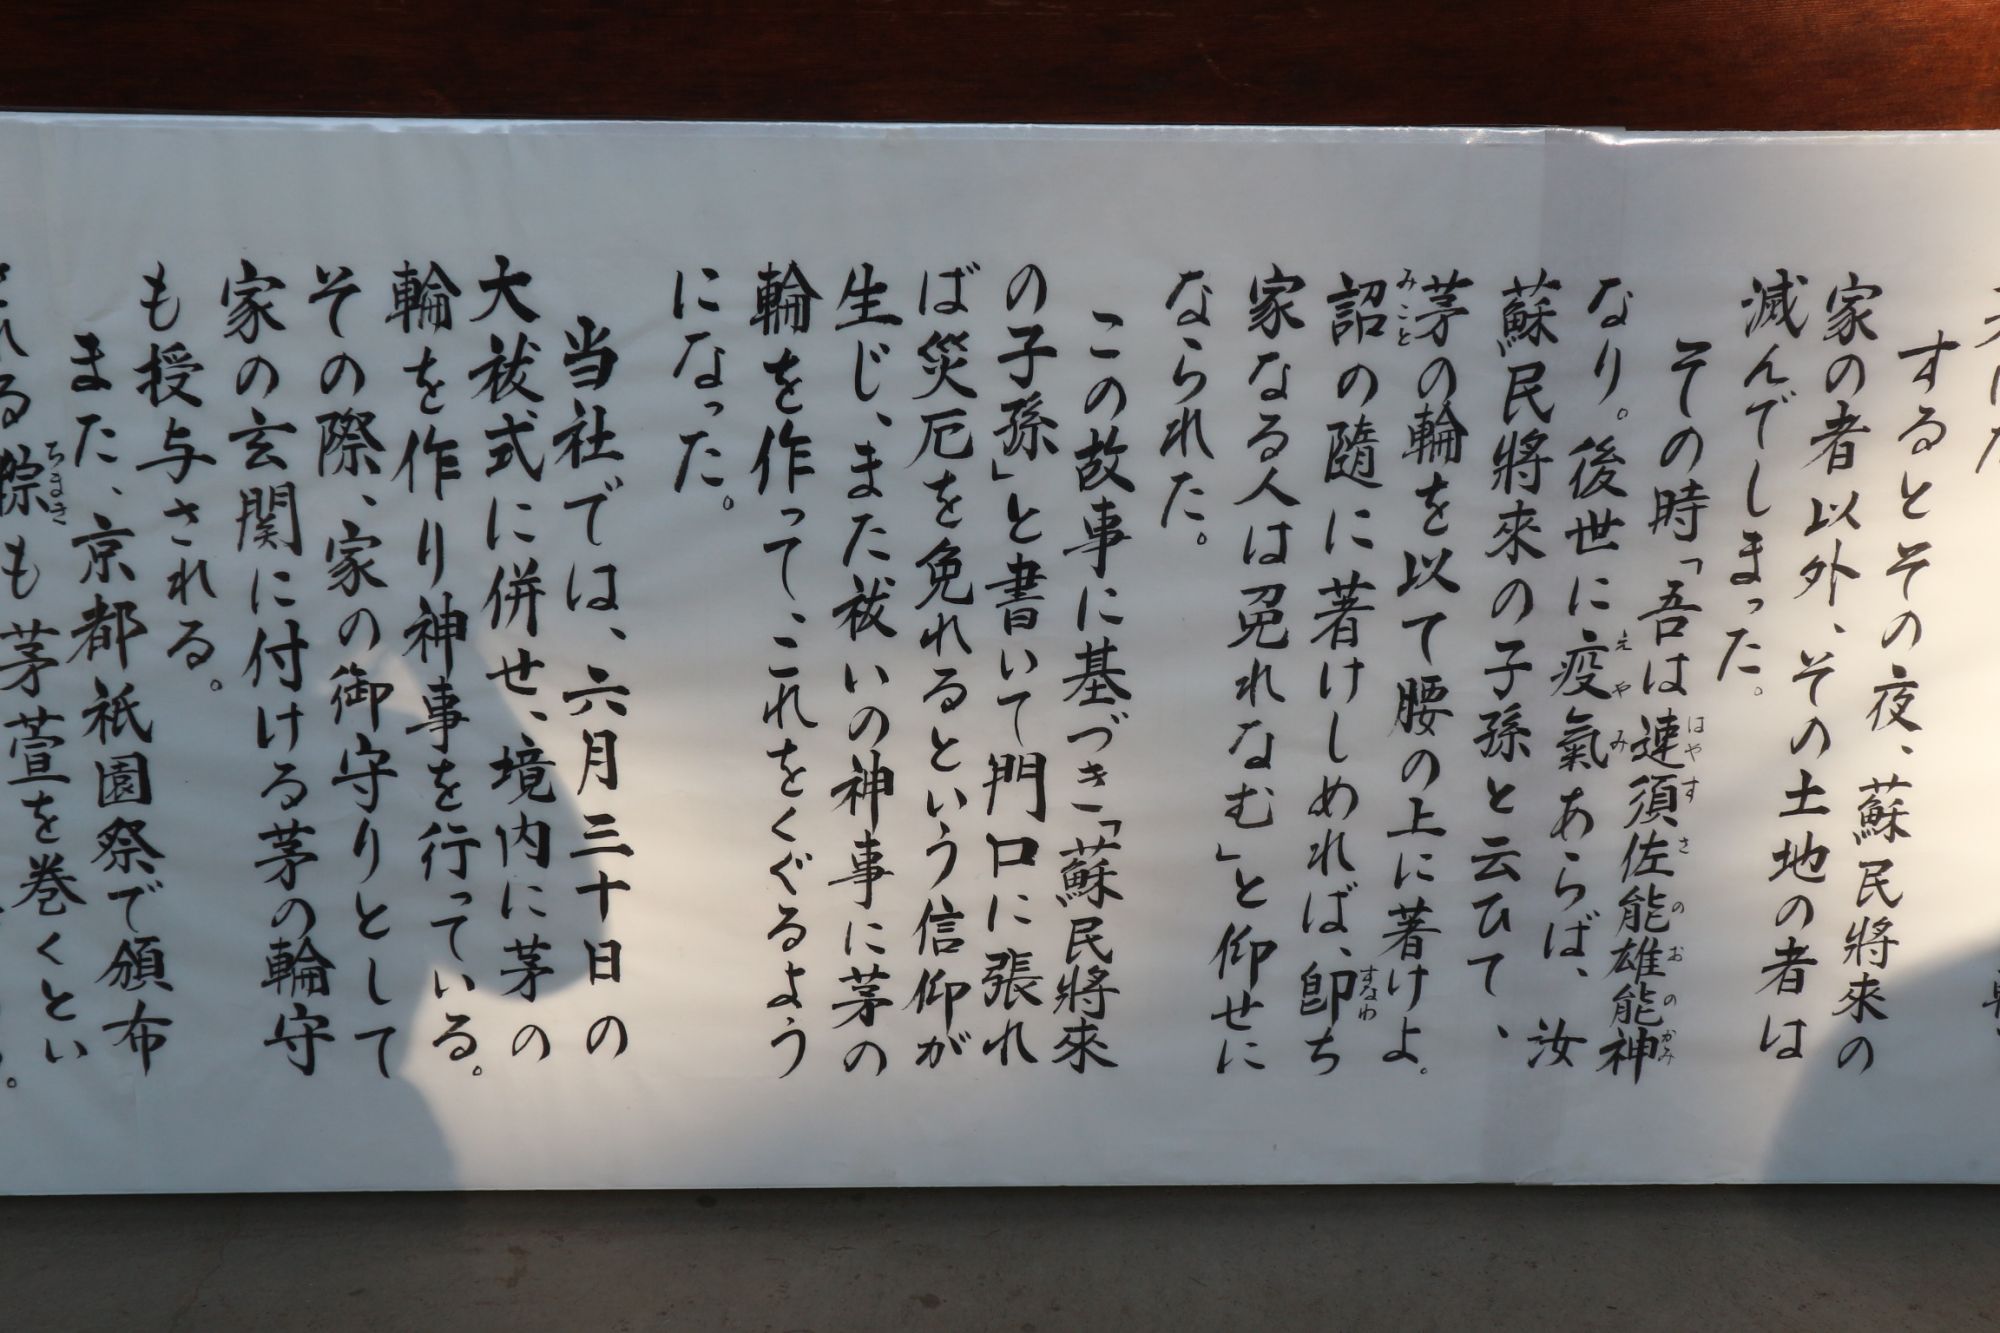 するとその夜、蘇民將來の
家の者以外、その土地の者は
滅んでしまった。
その時「吾は速須佐能雄能神
なり。後世に疫氣あらば、汝
蘇民將來の子孫と云ひて、
茅の輪を以て腰の上に著けよ。
詔の隨に著けしめれば、卽ち
家なる人は免れなむ」と仰せに
なられた。
この故事に基づき「蘇民將來
の子孫」と書いて門口に張れ
ば災厄を免れるという信仰が
生じ、また祓いの神事に茅の
輪を作って、これをくぐるよう
になった。
当社では、六月三十日の
大祓式に併せ、境内に茅の
輪を作り神事を行っている。
その際、家の御守りとして
家の玄関に付ける茅の輪守
も授与される。
また、京都祇園祭で頒布
される粽も茅萱を巻くとい